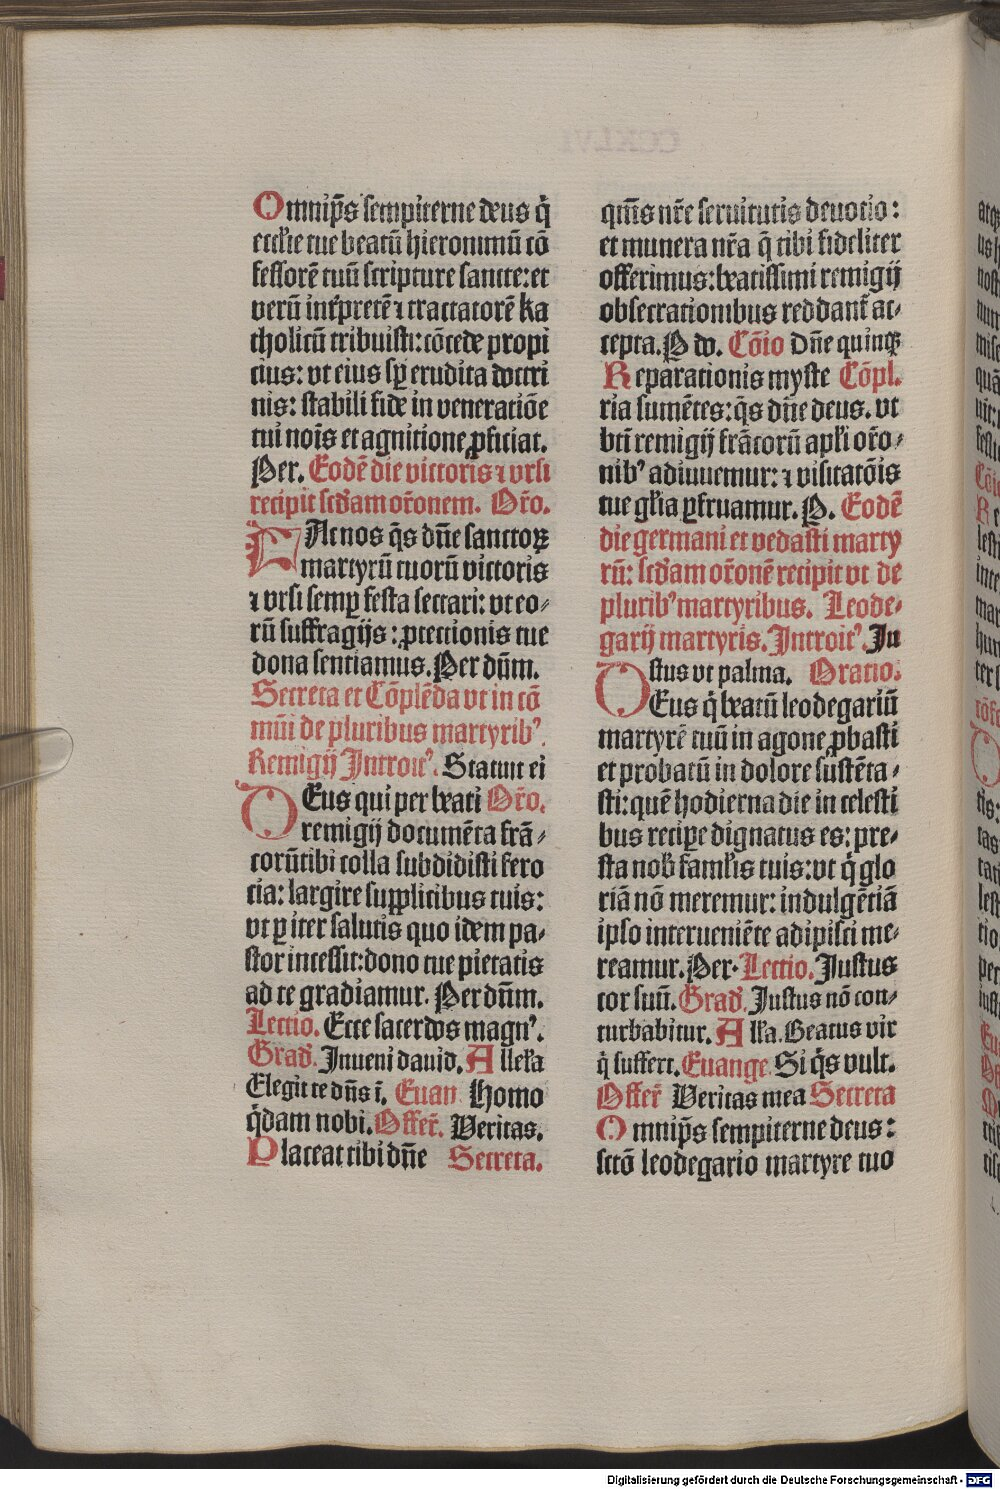 Omnip̄s sempiterne deus q̇
eccl̄ie tue beatū hieronimū cō
fessorē tuū scripture sancte: et
verū int̄pretē ⁊ tractatorē ka
tholicū tribuisti: cōcede propi
cius: vt eius sp̄ erudita doctri
nis: stabili fide in veneratiōe
tui nois̄ et agnitione ꝓficiat.
Per. Eodē die victoris ⁊ vrsi
recipit scd̄am or̄onem. Or̄o.
FAc nos q̄s dn̄e sanctoꝝ
martyrū tuorū victoris
⁊ vrsi semꝑ festa sectari: vt eo⸗
rū suffragijs: ꝓtectionis tue
dona sentiamus. Per dn̄m.
Secreta et Cōplēda vt in cō
mūi de pluribus martyrib⁹.
Remigij Introit⁹. Statuit ei
DEus qui per beati Or̄o.
remigij documēta frā⸗
corū tibi colla subdidisti fero
cia: largire supplicibus tuis:
vt ꝑ iter salutis quo idem pa⸗
stor incessit: dono tue pietatis
ad te gradiamur. Per dn̄m.
Lectio. Ecce sacerdos magn⁹.
Grad̄. Inueni dauid. Allel̄a
Elegit te dn̄s ī. Euan Homo
q̇dam nobi. Offer̄. Veritas.
Placeat tibi dn̄e Secreta.
qm̄s nr̄e seruitutis deuotio:
et munera nr̄a q̄ tibi fideliter
offerimus: beatissimi remigij
obsecrationibus reddant̄ ac⸗
cepta. P do. Cōio Dn̄e quinqꝫ
Reparationis myste Cōpl.
ria sumētes: q̄s dn̄e deus. vt
bt̄i remigij frācorū apl̄i or̄o⸗
nib⁹ adiuuemur: ⁊ visitatōis
tue gl̄ia ꝑfruamur. P. Eodē
die germani et vedasti marty
rū: scd̄am or̄onē recipit vt de
plurib⁹ martyribus. Leode⸗
garij martyris. Introit⁹. Ju
stus vt palma. Oratio.
DEus q̇ beatū leodegariū
martyrē tuū in agone ꝓbasti
et probatū in dolore sustēta⸗
sti: quē hodierna die in celesti
bus recipe dignatus es: pre⸗
sta nob̄ faml̄is tuis: vt q̇ glo
riā nō meremur: indulgētiā
ipso interueniēte adipisci me⸗
reamur. Per. Lectio. Justus
cor suū. Grad̄. Justus nō con⸗
turbabitur. All̄a. Beatus vir
q̇ suffert. Euange Si q̇s vult.
Offer̄ Veritas mea Secreta
Omnip̄s sempiterne deus:
sctō leodegario martyre tuo
Digitalisierung gefördert durch die Deutsche Forschungsgemeinschaft - DFG